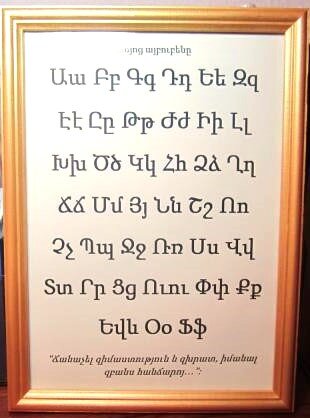 այբուբենը
Աա Բբ Գգ Դդ Եե Զզ
Էէ Ըը Թթ Ժժ Իի Լլ
Խխ Ծծ Կկ Հհ Ձձ Ղղ
Ճճ Մմ Յյ Նն Շշ Ոո
Չչ Պպ Ջջ Ռռ Սս Վվ
Տտ Րր Ցց Ււու Փփ Քք
Եվև Օօ Ֆֆ
"Ճանաչել զիմաստություն և զխրատ, իմանալ
զբանս հանճարոյ...":